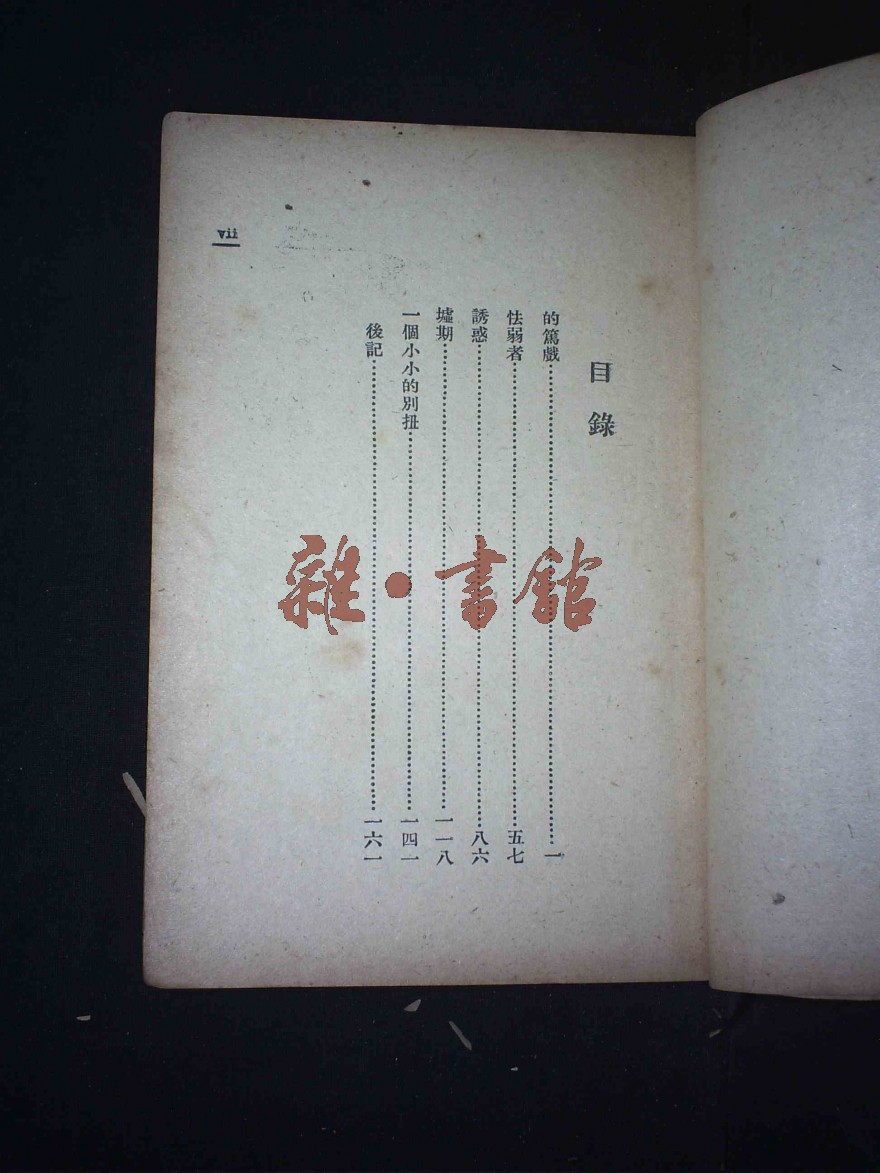 目錄
的篤戲……一
怯弱者……五七
誘惑……八六
墟期……一一八
一個小小的別扭……一四一
後記……一六一
vii
雜·書館